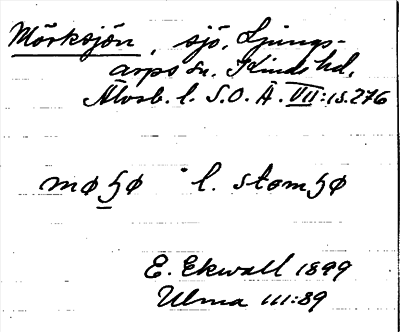 Mörksjön, sjö, Ljungs-
arps sn. Kinds hd.
Älvsb. l. S.O.Ä. VII:1s.276
møʖø l. stomʖø
E. Ekwall 1899
Ulma 111:89